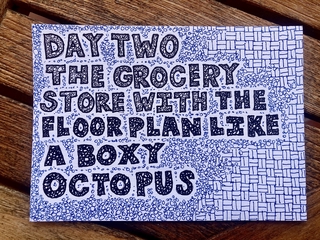 DAY TWO
THE GROCERY
STORE WITH THE
FLOOR PLAN LIKE
A BOXY
OCTOPUS